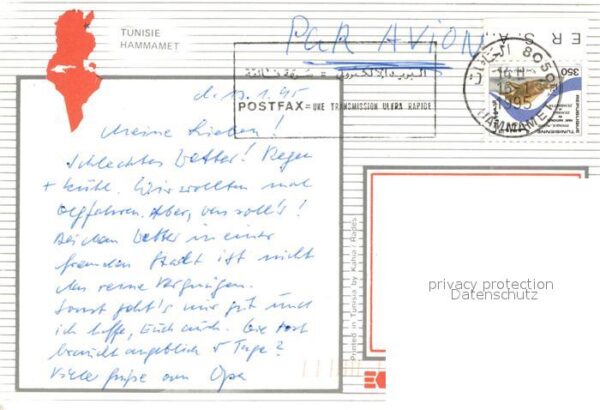 TUNISIE
HAMMAMET
PAR AVION
E R S. A
البريد الإلكتروني = سريع
POSTFAX = UNE TRANSMISSION ULTRA RAPIDE
8050
1995
HAMMAMET
350
REPUBLIQUE
TUNISIENNE
d. 13.1.95
Meine Lieben!
Schlechtes Wetter! Regen
+ kühl. Wir wollten mal
wegfahren. Aber, was soll's!
Bei dem Wetter in einer
fremden Stadt ist nicht
das reine Vergnügen.
Sonst geht's mir gut und
ich hoffe, Euch auch. Die Post
braucht angeblich 5 Tage?
Viele Grüße von Opa
Printed in Tunisia by Kahia / Radès
privacy protection
Datenschutz